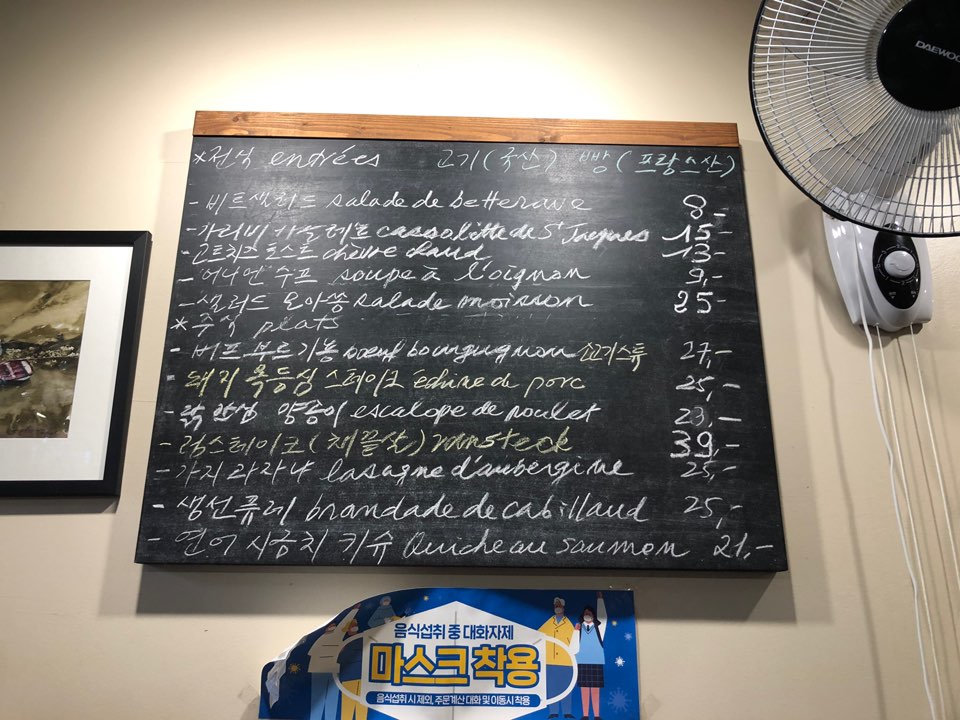 *전식 entrées 고기(국산) 빵(프랑스산)
- 비트샐러드 salade de betterave 8,-
- 가리비 카솔레트 cassolitte de St Jaques 15,-
- 고트치즈 토스트 chèvre chaud 13,-
- 어니언 수프 soupe à l'oignon 9,-
- 샐러드 모아쏭 salade moisson 25-
*주식 plats
- 비프 부르기뇽 bœuf bourguignon 소고기스튜 27,-
- 돼지 목등심 스테이크 échine de porc 25,-
- 닭 안심 양송이 escalope de poulet 23,-
- 럼스테이크(채끝살) rumsteck 39,-
- 가지 라자냐 lasagne d'aubergine 25,-
- 생선퓨레 brandade de cabillaud 25,-
- 연어 시금치 키슈 Quiche au saumon 21,-
음식섭취 중 대화자제
마스크 착용
음식섭취 시 제외, 주문계산 대화 및 이동시 착용
DAEWOO